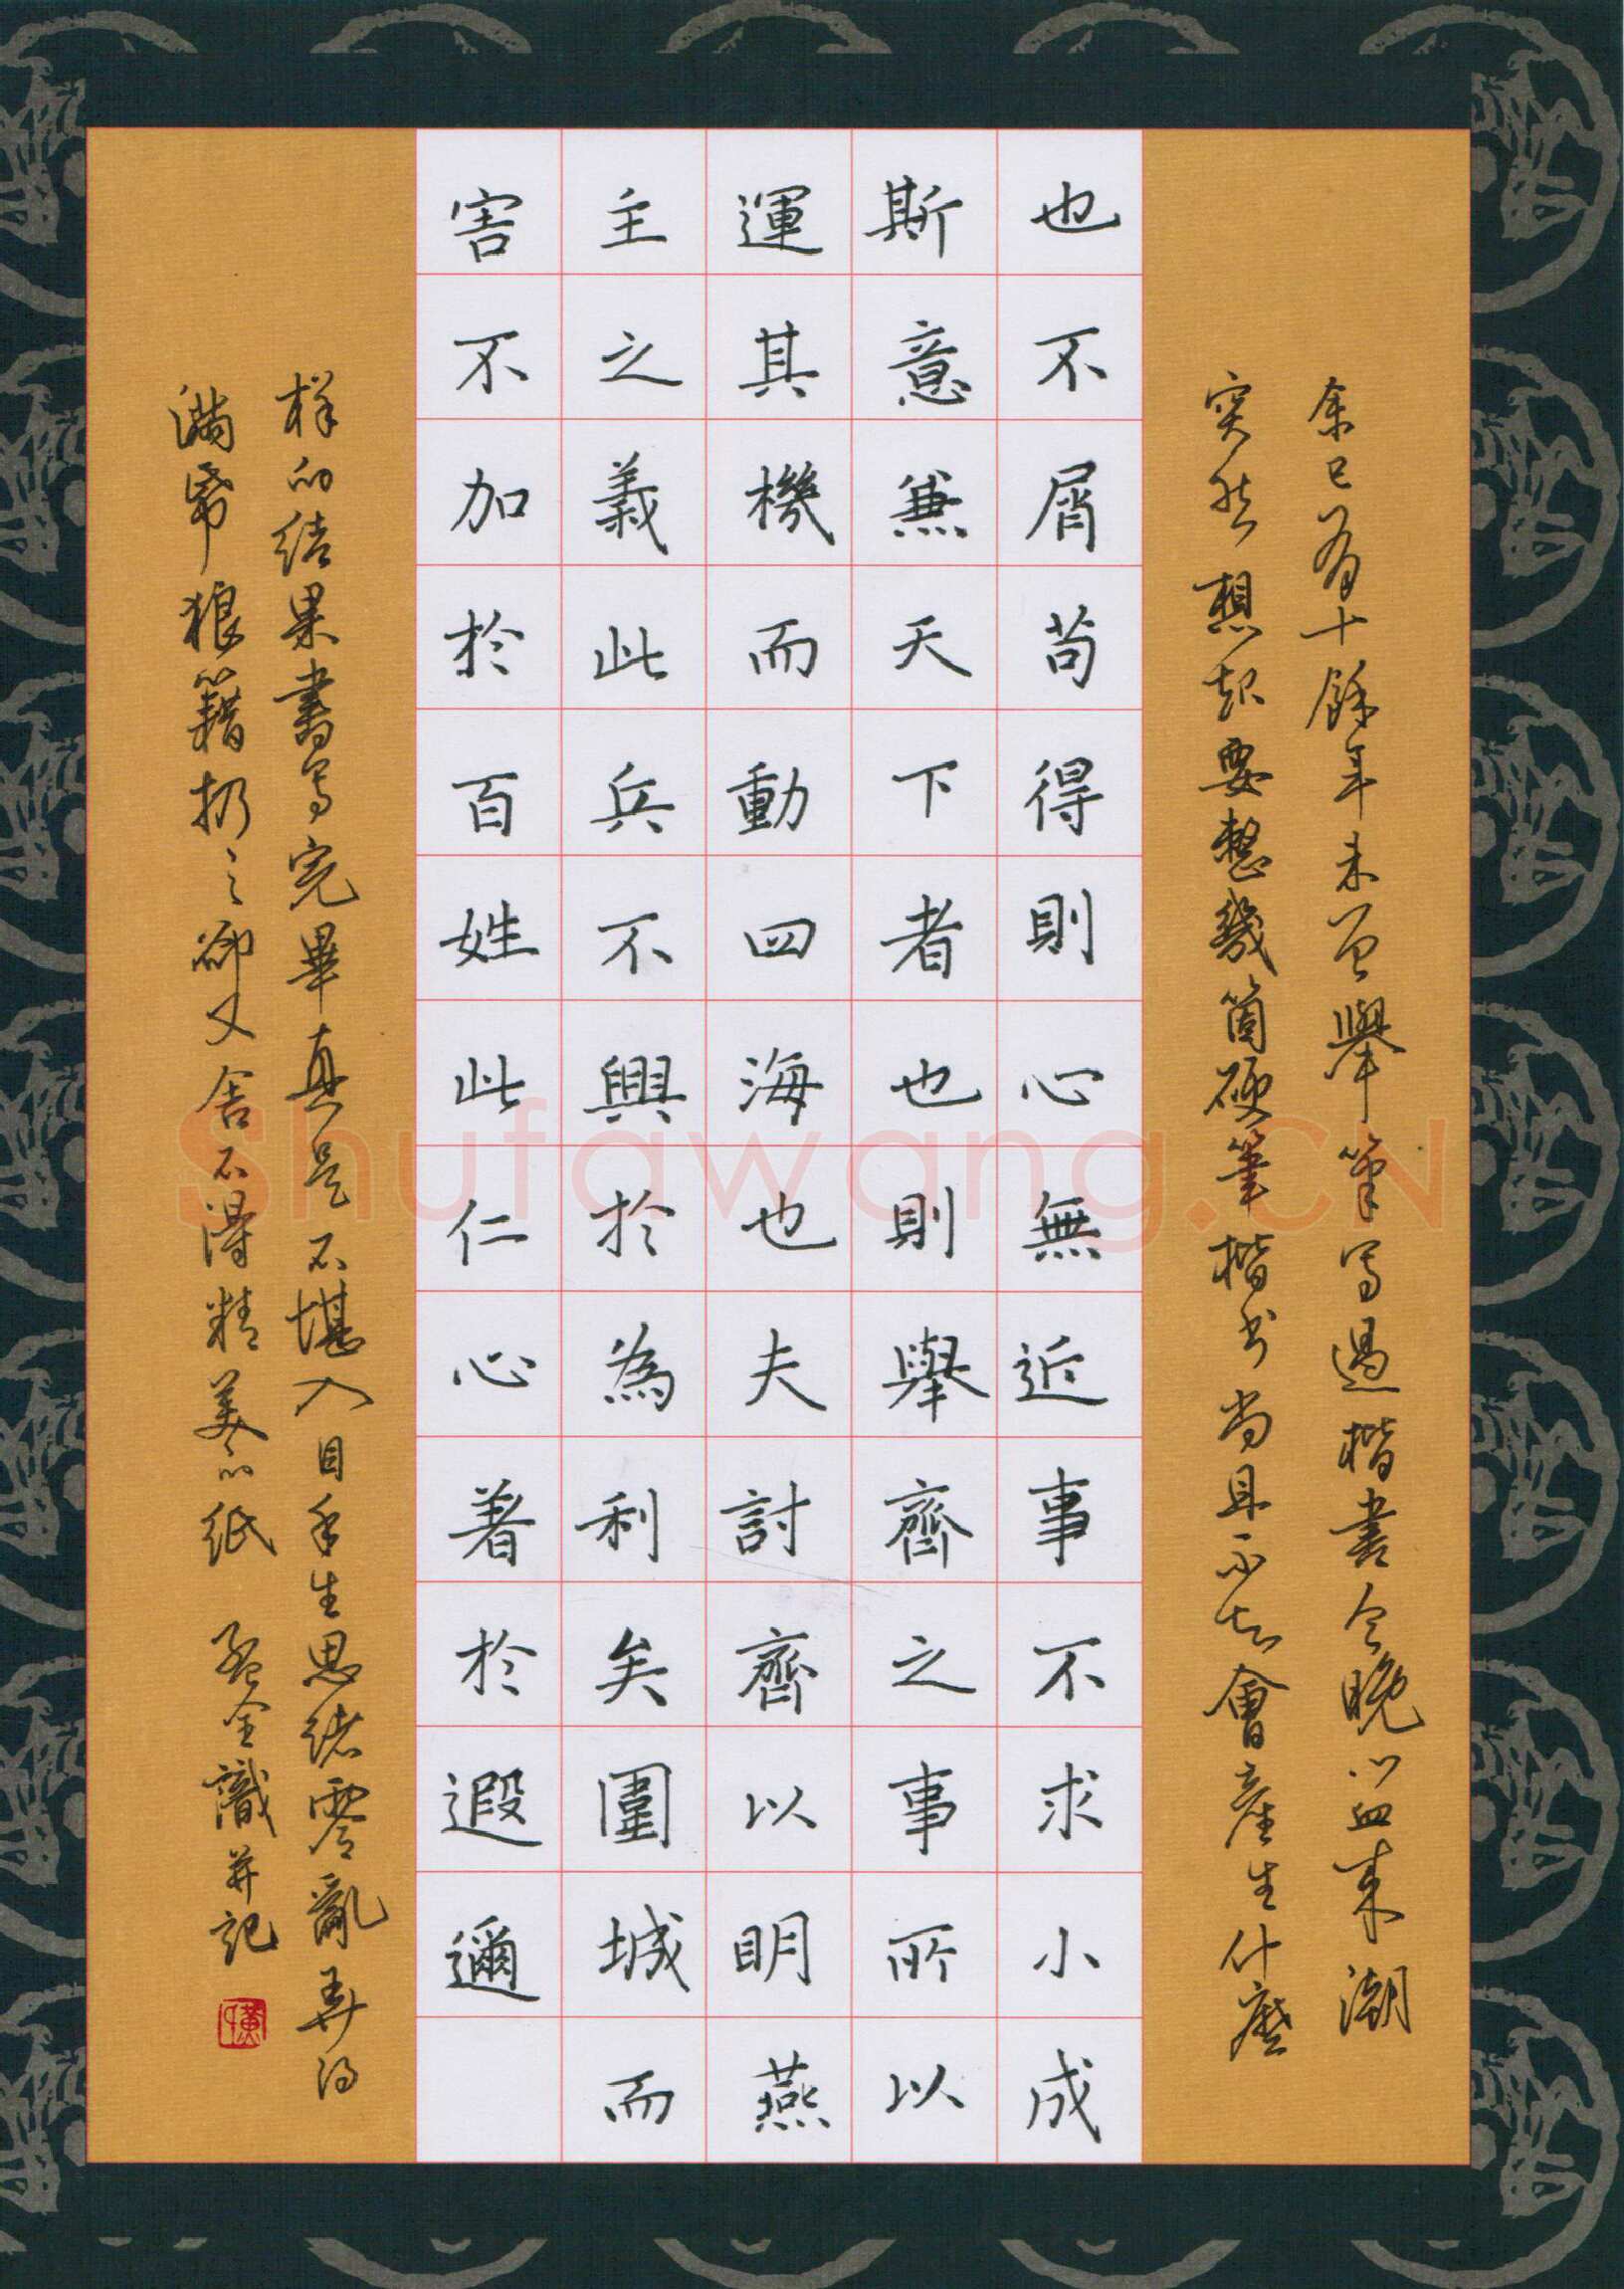 余已有十餘年未曾舉筆寫過楷書今晚心血来潮
突然想起要整幾箇硬筆楷书尚且不知會產生什麼
也不屑苟得則心無近事不求小成
斯意兼天下者也則舉齊之事所以
運其機而動四海也夫討齊以明燕
主之義此兵不興於為利矣圍城而
害不加於百姓此仁心著於遐邇
様的结果書写完畢真是不堪入目手生思绪零亂弄得
满紙狼籍扔之卻又舍不得精美的纸 金識并記
Shufawang.CN